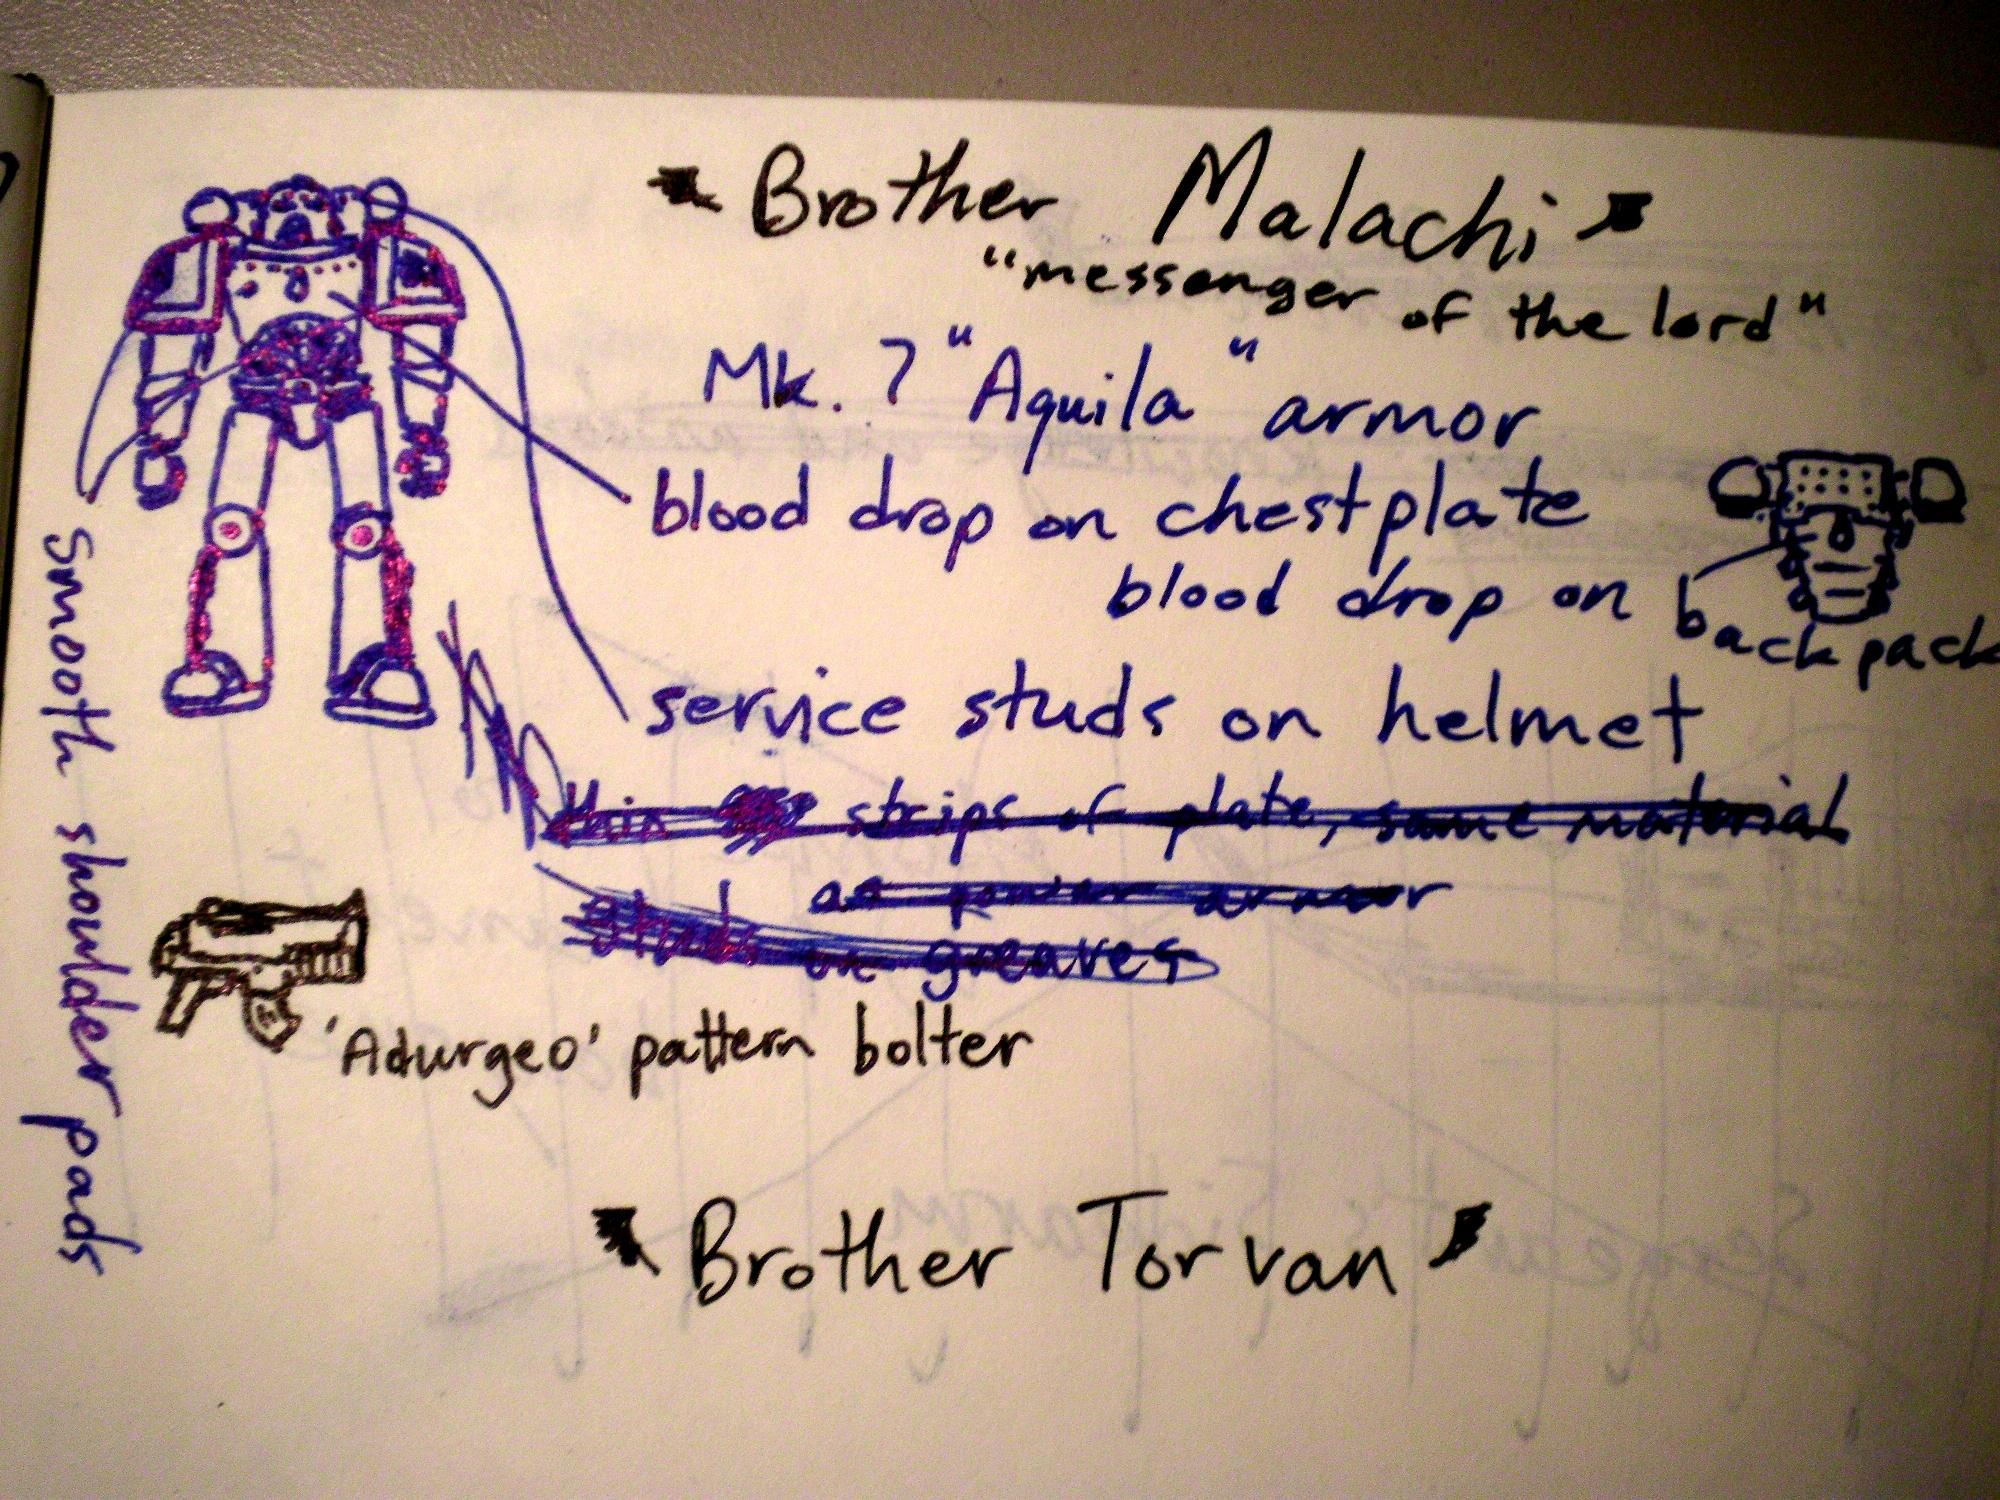 Brother Malachi
"messenger of the lord"
Mk. 7 "Aquila" armor
blood drop on chestplate
blood drop on backpack
service studs on helmet
thin strips of plate, same material
as power armor
studs on greaves
smooth shoulder pads
'Adurgeo' pattern bolter
Brother Torvan